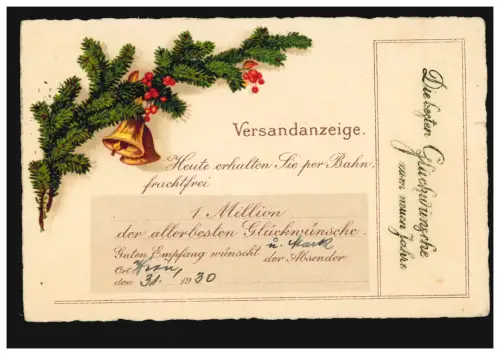 Versandanzeige.
Heute erhalten Sie per Bahn,
frachtfrei
1 Million
der allerbesten Glückwünsche.
u. Mark
Guten Empfang wünscht der Absender
Ort
den 31. 1930
Die besten Glückwünsche
zum neuen Jahre